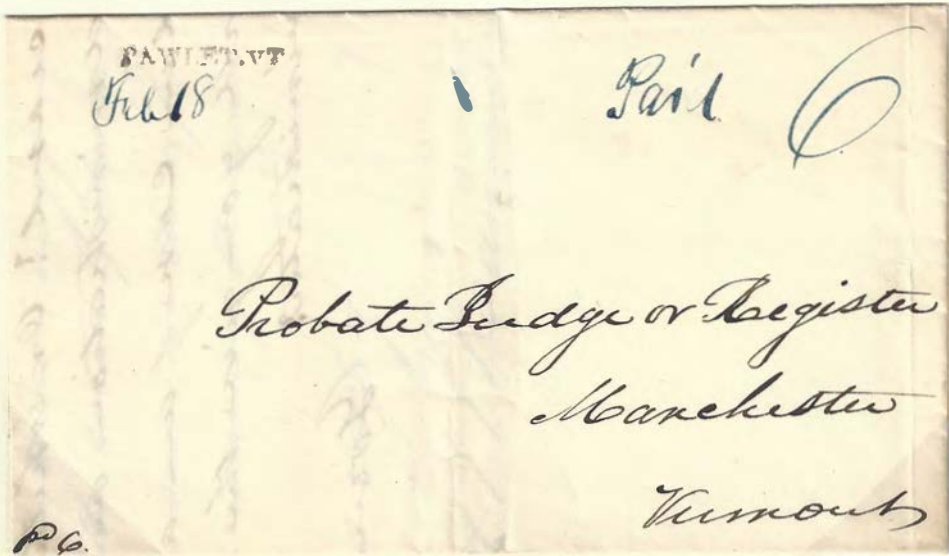 PAWLET.VT
Feb 18
Paid 6
Probate Judge or Register
Manchester
Vermont
Pd 6.